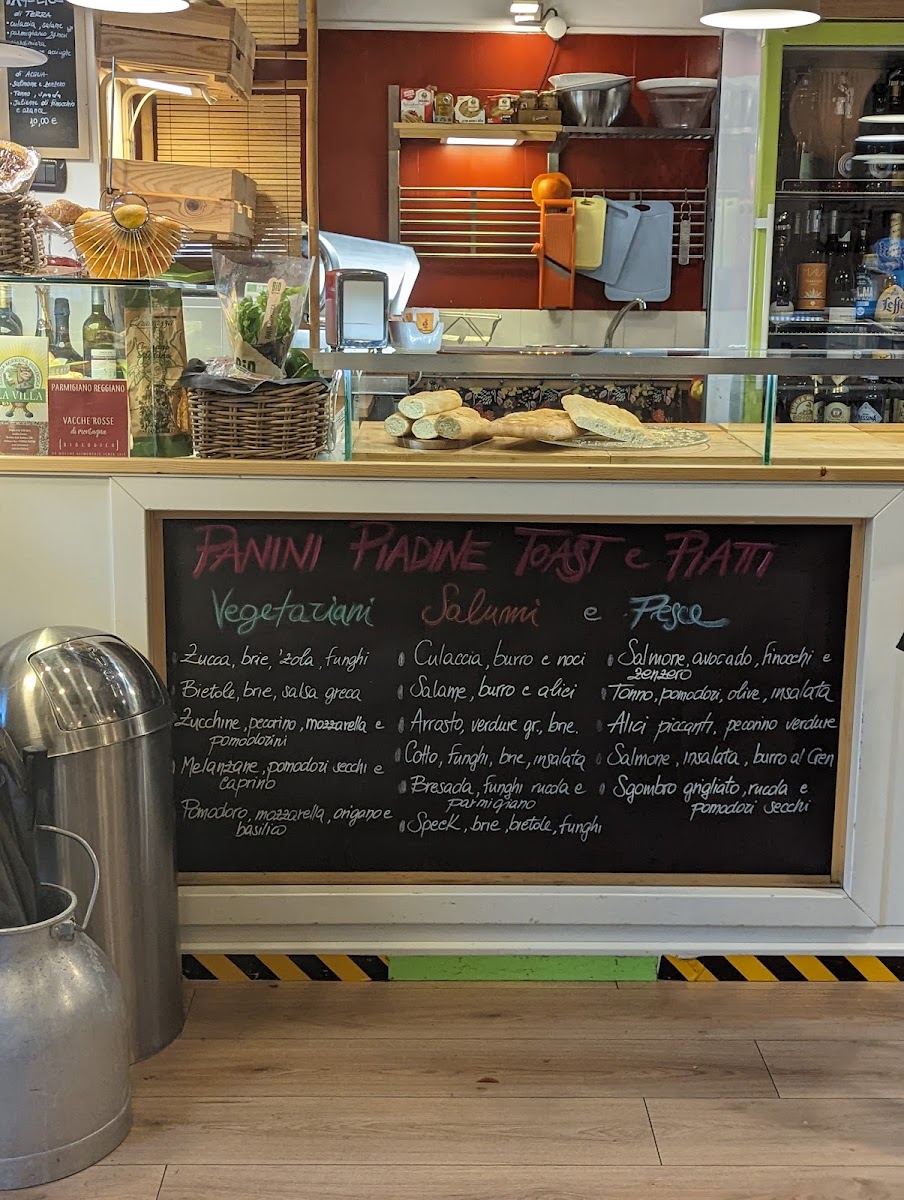 di TERRA
di ACQUA
10,00 €
LA VILLA
PARMIGIANO REGGIANO
VACCHE ROSSE
di montagna
[BIOLOGICO]
Leffe
PANINI PIADINE TOAST e PIATTI
Vegetariani Salumi e Pesce
Zucca, brie, 'zola, funghi
Bietole, brie, salsa greca
Zucchine, pecorino, mozzarella e
pomodorini
Melanzane, pomodori secchi e
caprino
Pomodoro, mozzarella, origano e
basilico
Culaccia, burro e noci
Salame, burro e alici
Arrosto, verdure gr., brie.
Cotto, funghi, brie, insalata
Bresada, funghi rucola e
parmigiano
Speck, brie, bietole, funghi
Salmone, avocado, finocchi e
zenzero
Tonno, pomodori, olive, insalata
Alici piccanti, pecorino verdure
Salmone, insalata, burro al Cren
Sgombro grigliato, rucola e
pomodori secchi